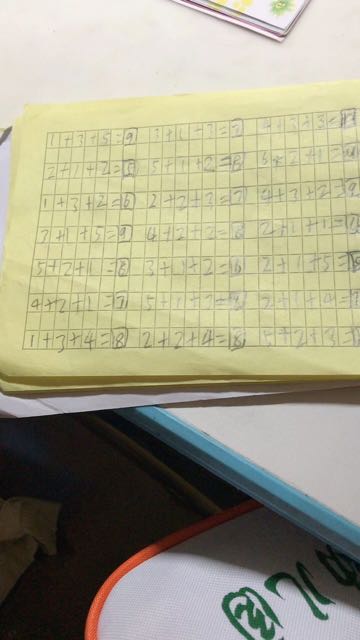 1+3+5=9 3+1+3=7 4+3+3=
2+1+2=5 5+1+2=8 6+2+1=
1+3+2=6 2+2+3=7 4+3+2=9
3+1+5=9 4+2+2=8 2+1+1=
5+2+1=8 3+1+2=6 2+1+5=
4+2+1=7 5+1+2=8 2+1+4=7
1+3+4=8 2+2+4=8 5+2+3=